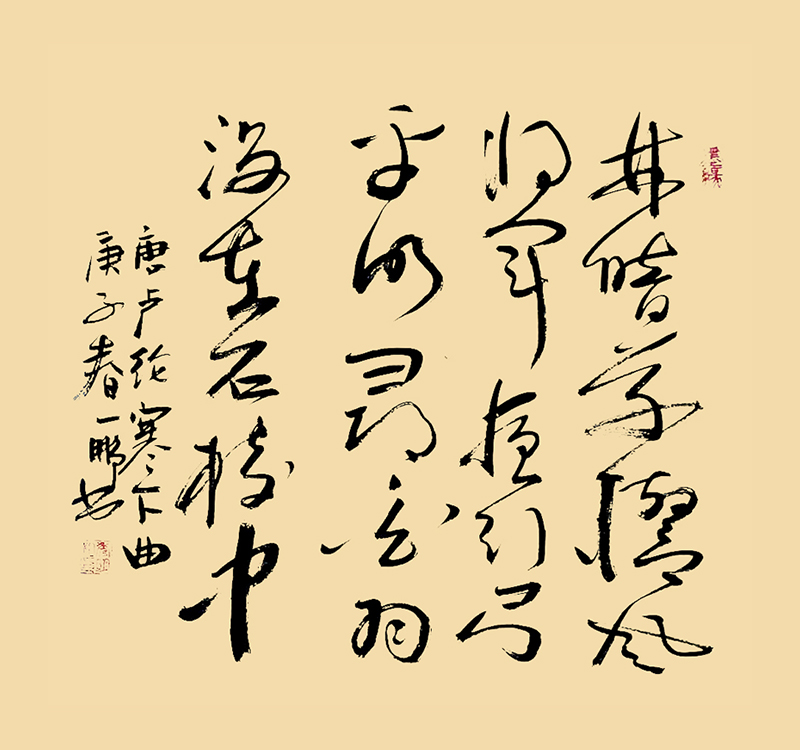 林暗草驚风
将军夜引弓
平明尋白羽
没在石棱中
唐卢纶寒下曲
庚子春一鹏书